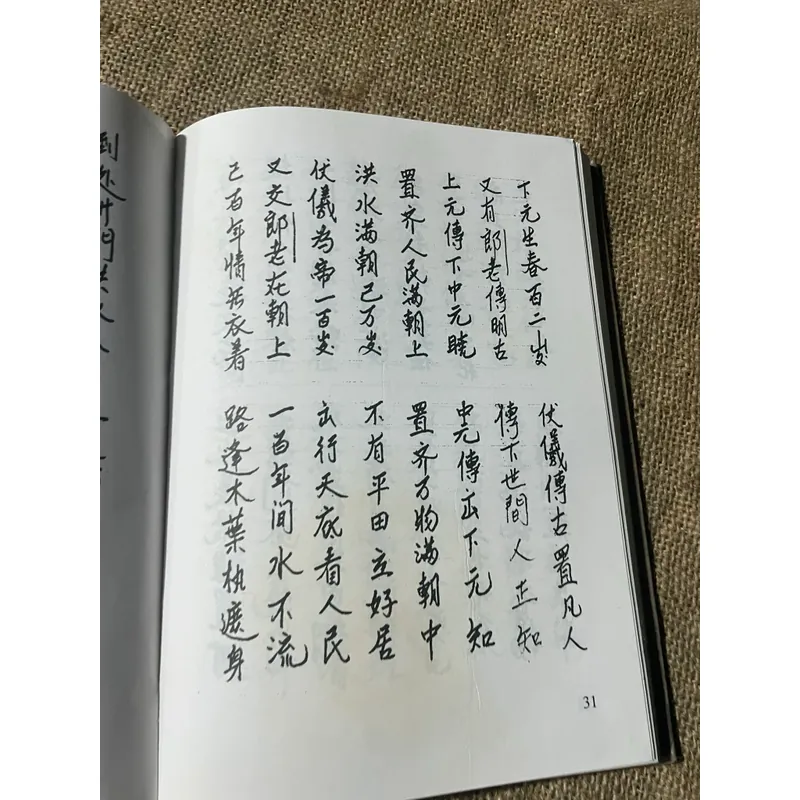 下元生春百二岁
伏儀傳古置凡人
又有郎老傳明古
傳下世間人正知
上元傳下中元曉
中元傳出下元知
置齐人民满朝上
置齐万物满朝中
洪水满朝己万岁
不有平田立好居
伏儀為帝一百岁
出行天底看人民
又交郎老在朝上
一百年间水不流
己百年情无衣着
路逢木葉执遮身
31